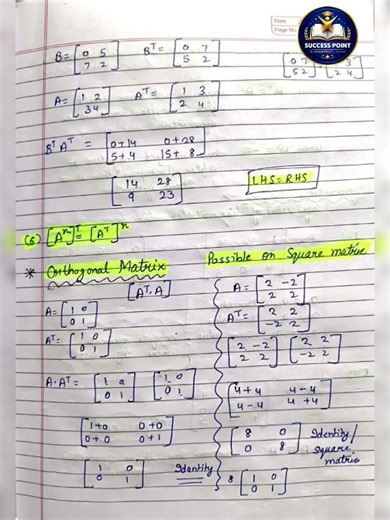 Date
Page No.
SUCCESS POINT
B = [0 5 / 7 2] Bᵀ = [0 7 / 5 2]
[0 7 / 5 2] [1 3 / 2 4]
A = [1 2 / 3 4] Aᵀ = [1 3 / 2 4]
BᵀAᵀ = [0+14 0+28 / 5+4 15+8]
[14 28 / 9 23] LHS = RHS
(6) [Aⁿ]ᵀ = [Aᵀ]ⁿ
* Orthogonal Matrix
[Aᵀ.A]
A = [1 0 / 0 1]
Aᵀ = [1 0 / 0 1]
A.Aᵀ = [1 0 / 0 1] [1 0 / 0 1]
[1+0 0+0 / 0+0 0+1]
[1 0 / 0 1] Identity
Possible on Square matrix
A = [2 -2 / 2 2]
Aᵀ = [2 2 / -2 2]
[2 -2 / 2 2] [2 2 / -2 2]
[4+4 4-4 / 4-4 4+4]
[8 0 / 0 8] Identity/
Square
matrix
8 [1 0 / 0 1]